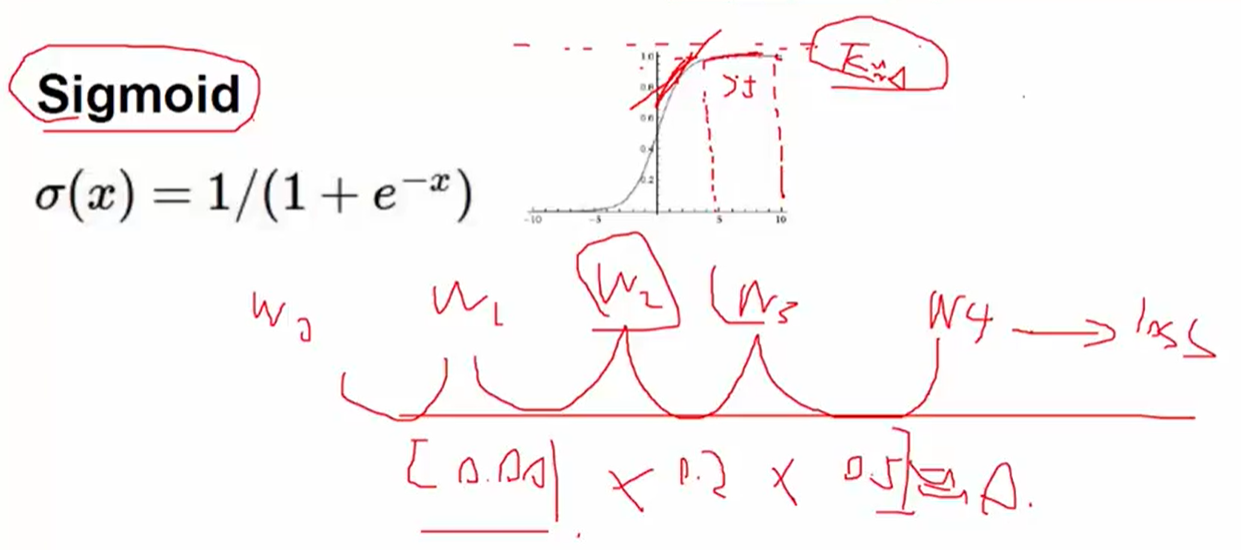 Sigmoid
σ(x) = 1/(1 + e^{-x})
1.0
0.8
0.6
0.4
0.2
-10 -5 5 10
W_1 W_2 W_3 W4 → loss
× 0.2 × 0.5]